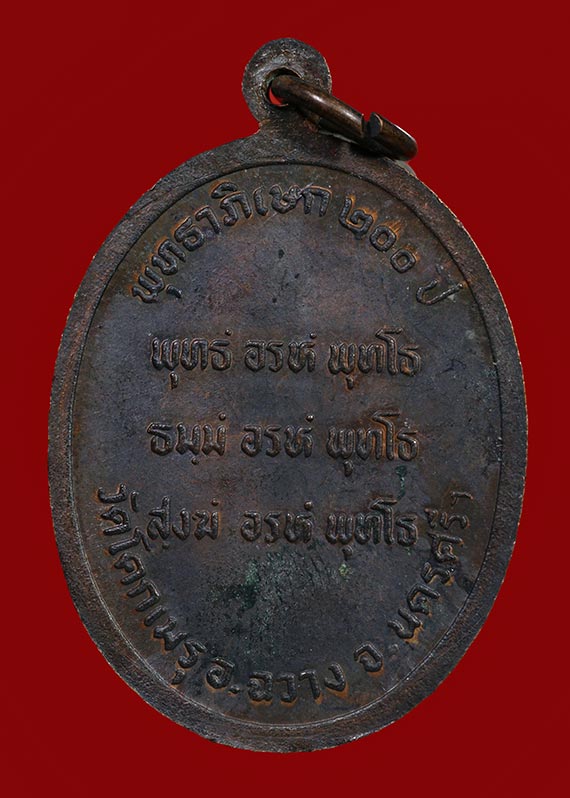 พุทธาภิเษก ๒๐๐ ปี
พุทธํ อรหํ พุทโธ
ธมฺมํ อรหํ พุทโธ
สงฺฆํ อรหํ พุทโธ
วัดโคกเมรุ อ.ฉวาง จ.นครศรีฯ